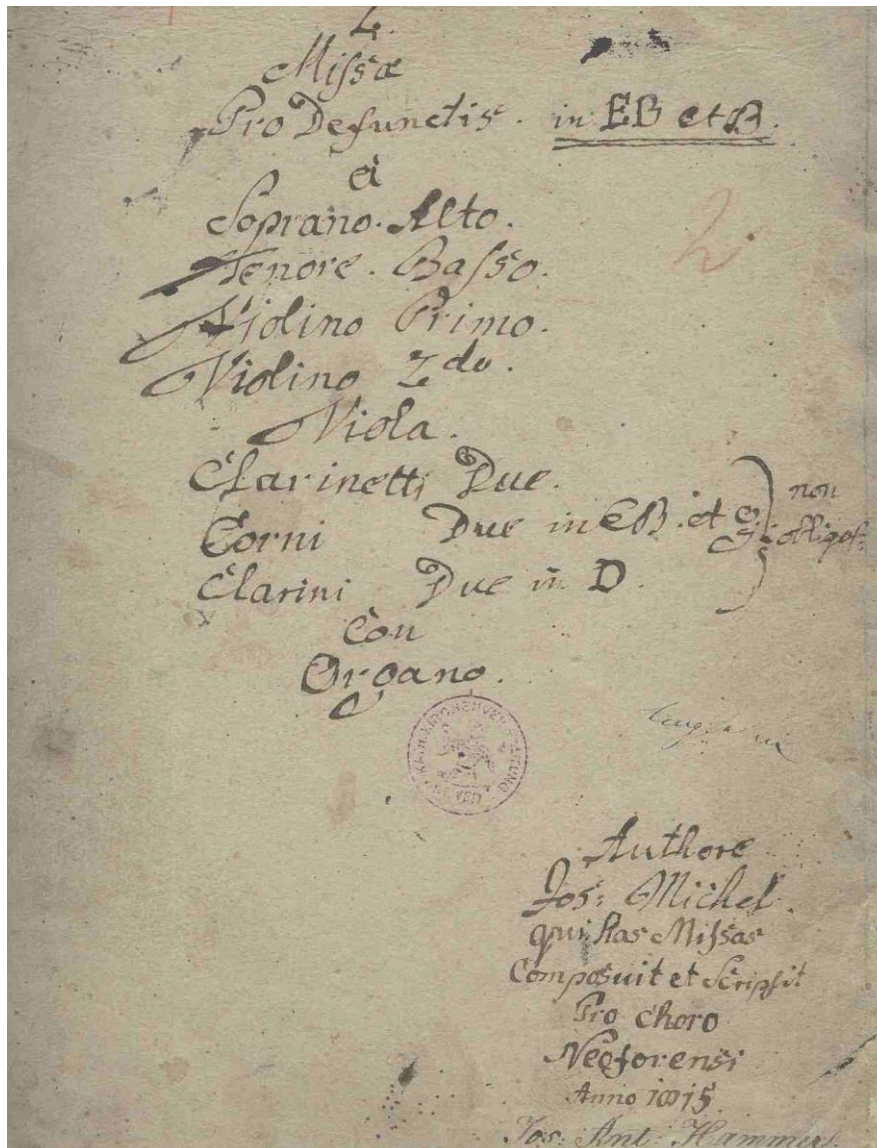 4.
Missæ
Pro Defunctis. in EB et B.
a
Soprano. Alto.
Tenore. Basso.
Violino Primo.
Violino 2do.
Viola.
Clarinetti Due.
Corni Due in EB. et
Clarini Due in D.
non
obligat:
Con
Organo.
Authore
Jos: Michel.
qui has Missas
Composuit et Scripsit
Pro Choro
Neoforensi
Anno 1815
Jos: Ant: Hammer.